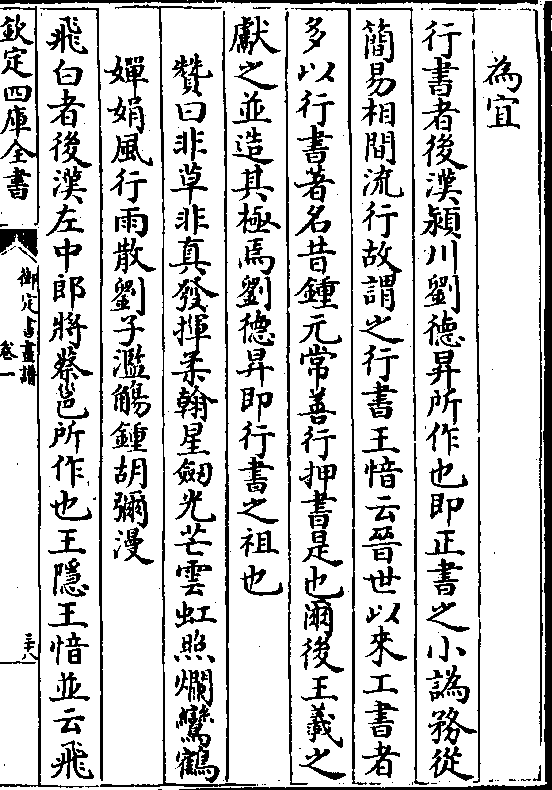 為宜
行書者後漢潁川劉德昇所作也即正書之小譌務從
簡易相間流行故謂之行書王愔云晉世以來工書者
多以行書著名昔鍾元常善行押書是也爾後王羲之
獻之並造其極焉劉德昇即行書之祖也
贊曰非草非真發揮柔翰星劒光芒雲虹照爛鸞鶴
嬋娟風行雨散劉子濫觴鍾胡彌漫
飛白者後漢左中郎將蔡邕所作也王隱王愔並云飛
欽定四庫全書
御定書畫譜
卷一
三十八